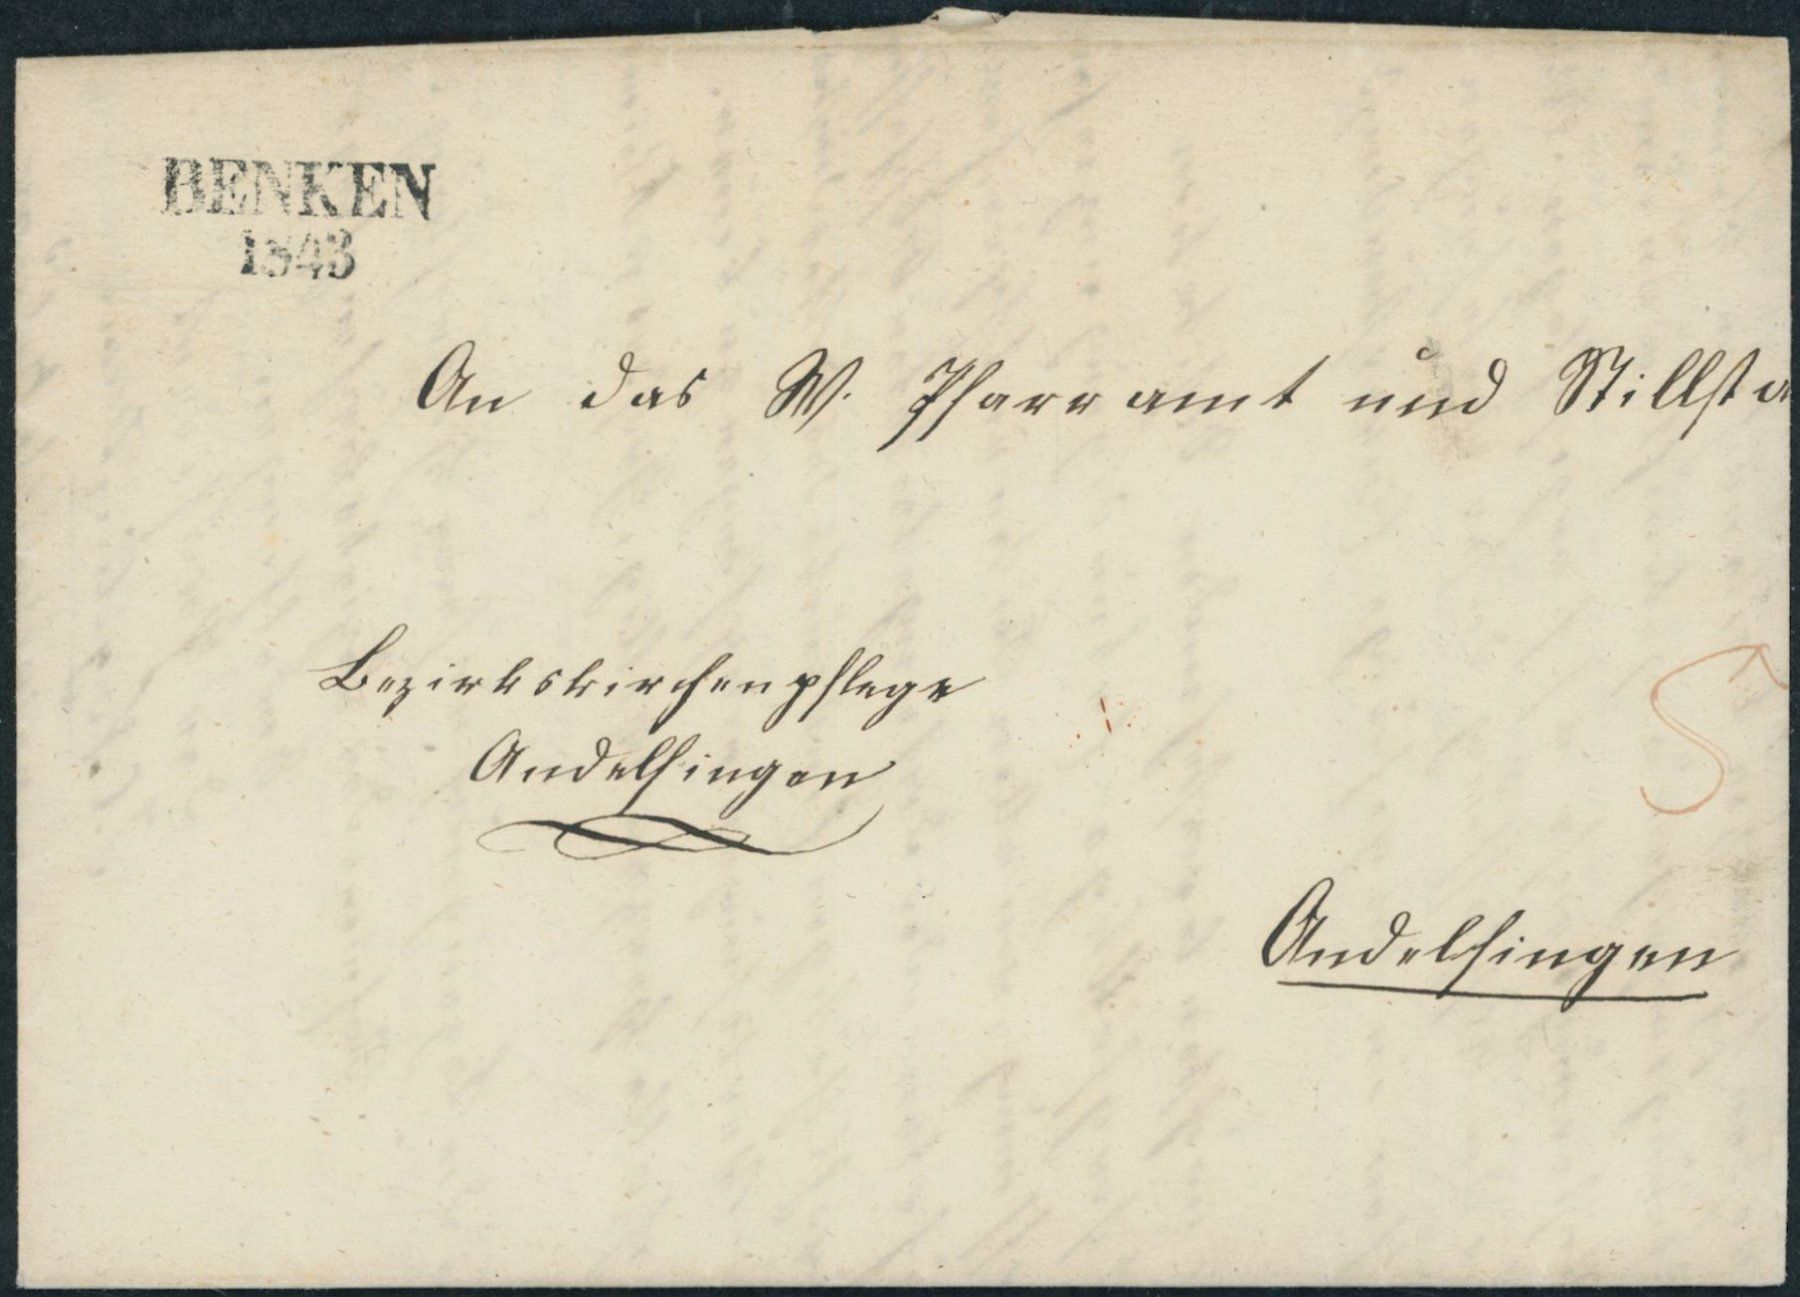 BENKEN
1843
An das W. Pfarramt und Stillsta
Bezirkskirchenpflege
Andelfingen
Andelfingen